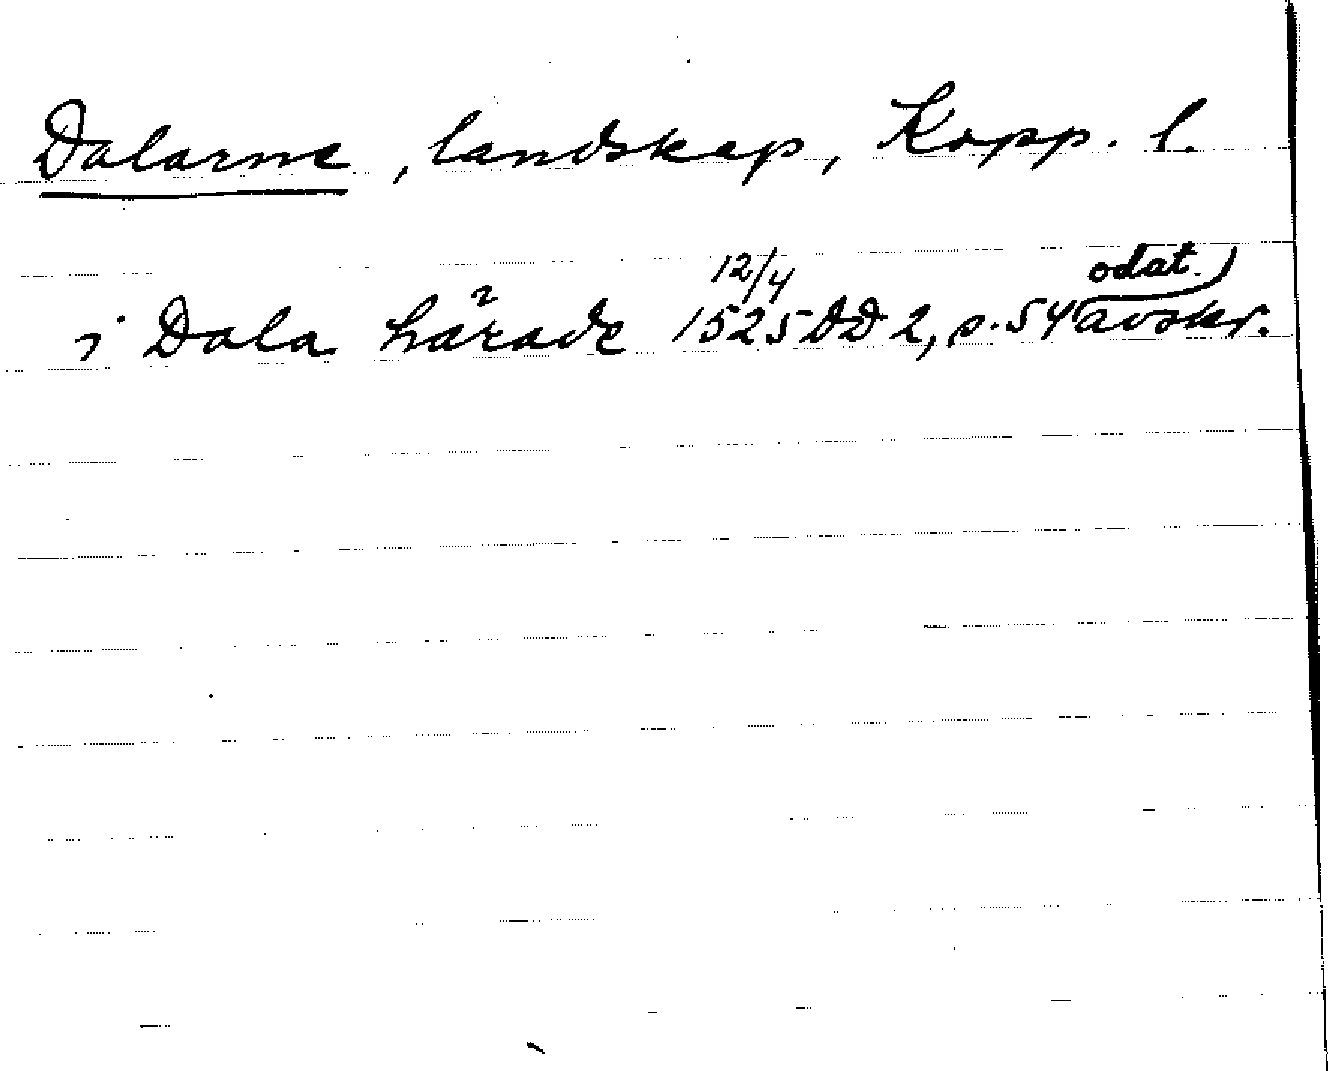 Dalarne, landskap, Kopp. l.
i Dala härade 12/4 1525 DD 2, s. 54 odat. avskr.